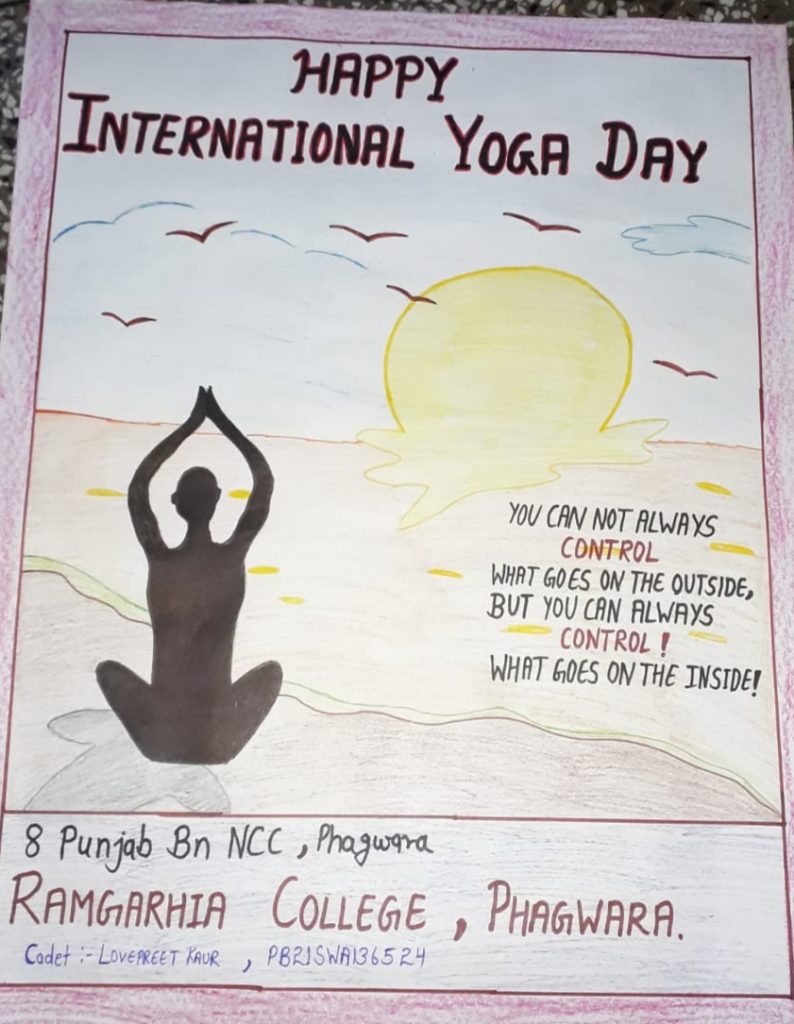 HAPPY
INTERNATIONAL YOGA DAY
YOU CAN NOT ALWAYS
CONTROL
WHAT GOES ON THE OUTSIDE,
BUT YOU CAN ALWAYS
CONTROL !
WHAT GOES ON THE INSIDE!
8 Punjab Bn NCC , Phagwara
RAMGARHIA COLLEGE , PHAGWARA.
Cadet :- LOVEPREET KAUR , PB21SWA136524